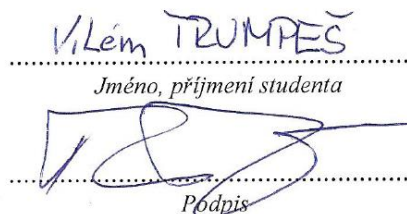 Vilém TRUMPEŠ
Jméno, příjmení studenta
Podpis